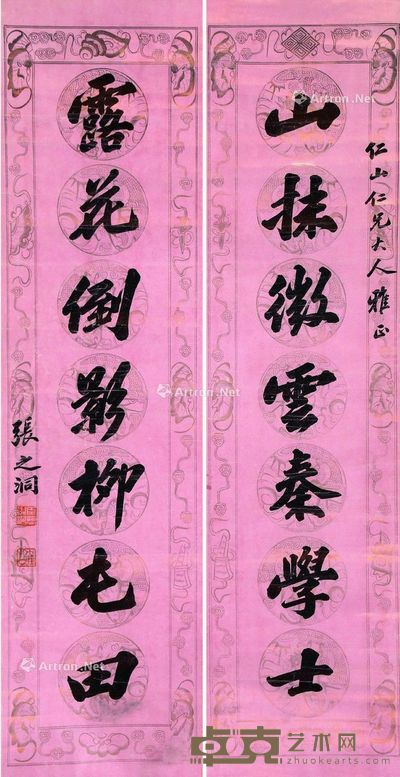 仁山仁兄大人雅正
山抹微雲秦學士
露花倒影柳屯田
張之洞
Artron.Net
Artron.Net
Artron.Net
Artron.Net
卓克艺术网
www.zhuokearts.com